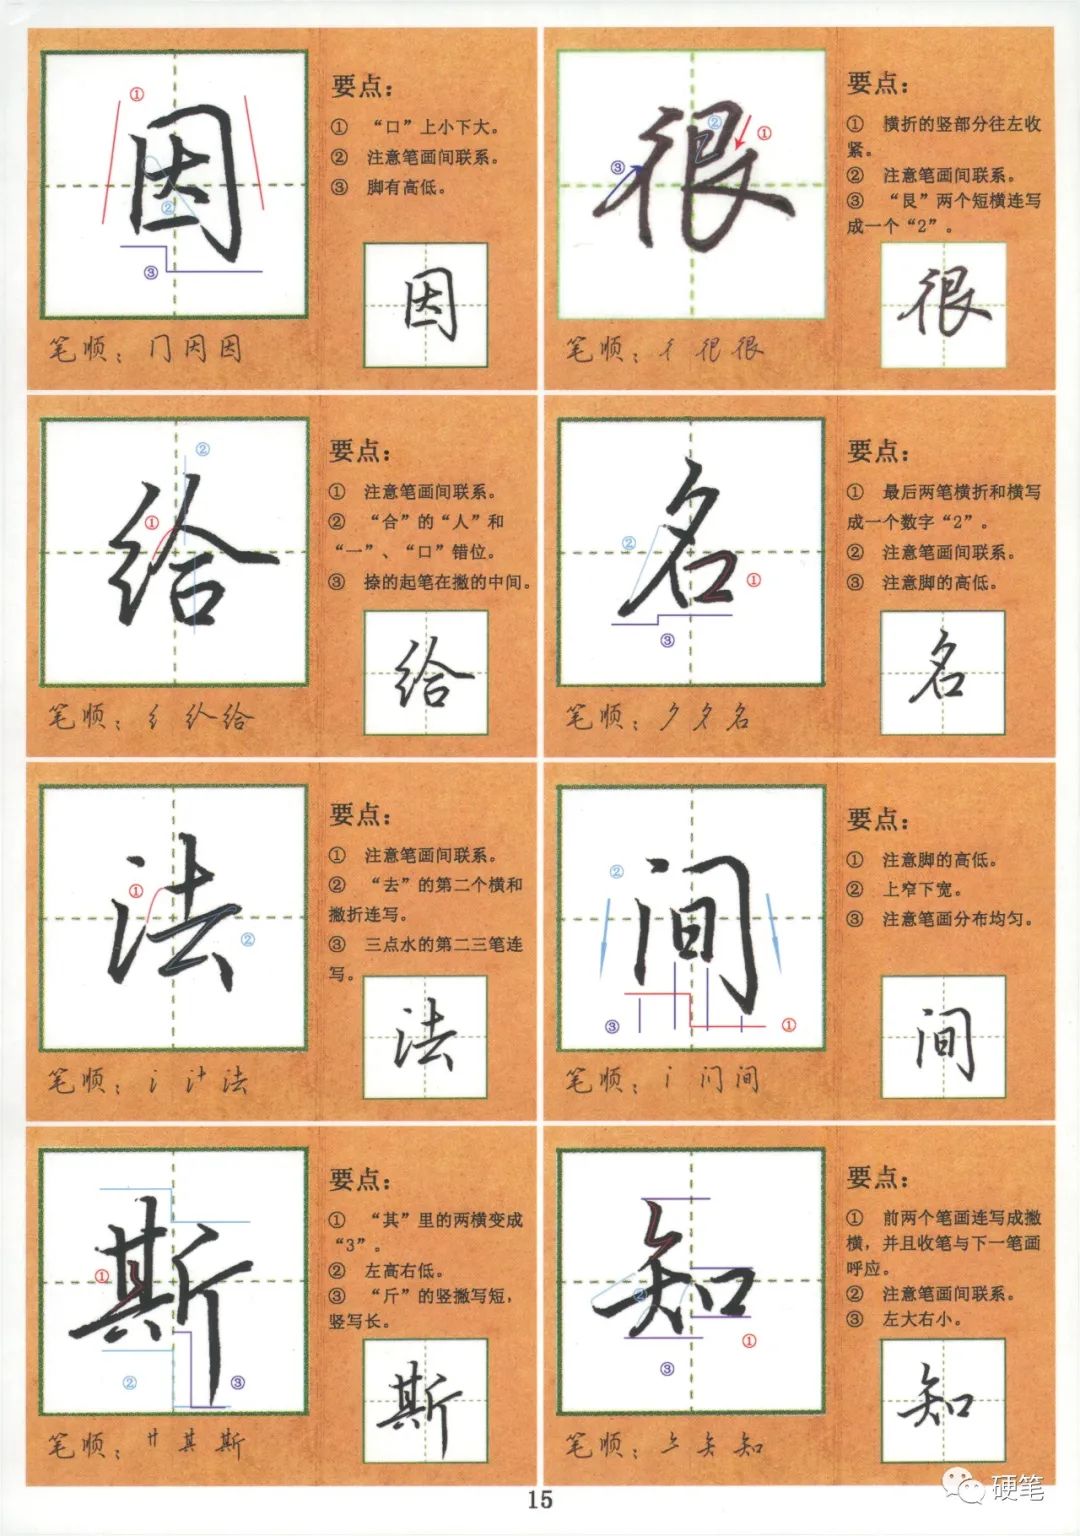 因
要点：
① “口”上小下大。
② 注意笔画间联系。
③ 脚有高低。
①
②
③
因
笔顺：冂 因 因
很
要点：
① 横折的竖部分往左收
紧。
② 注意笔画间联系。
③ “艮”两个短横连写
成一个“2”。
①
②
③
很
笔顺：彳 很 很
给
要点：
① 注意笔画间联系。
② “合”的“人”和
“一”、“口”错位。
③ 捺的起笔在撇的中间。
①
②
给
笔顺：纟 给
名
要点：
① 最后两笔横折和横写
成一个数字“2”。
② 注意笔画间联系。
③ 注意脚的高低。
①
②
③
名
笔顺：夕 名
法
要点：
① 注意笔画间联系。
② “去”的第二个横和
撇折连写。
③ 三点水的第二三笔连
写。
①
②
法
笔顺：氵 汁 法
间
要点：
① 注意脚的高低。
② 上窄下宽。
③ 注意笔画分布均匀。
①
②
③
间
笔顺：门 间
斯
要点：
① “其”里的两横变成
“3”。
② 左高右低。
③ “斤”的竖撇写短，
竖写长。
①
②
③
斯
笔顺：艹 其 斯
知
要点：
① 前两个笔画连写成撇
横，并且收笔与下一笔画
呼应。
② 注意笔画间联系。
③ 左大右小。
①
②
③
知
笔顺：矢 知
15
硬笔